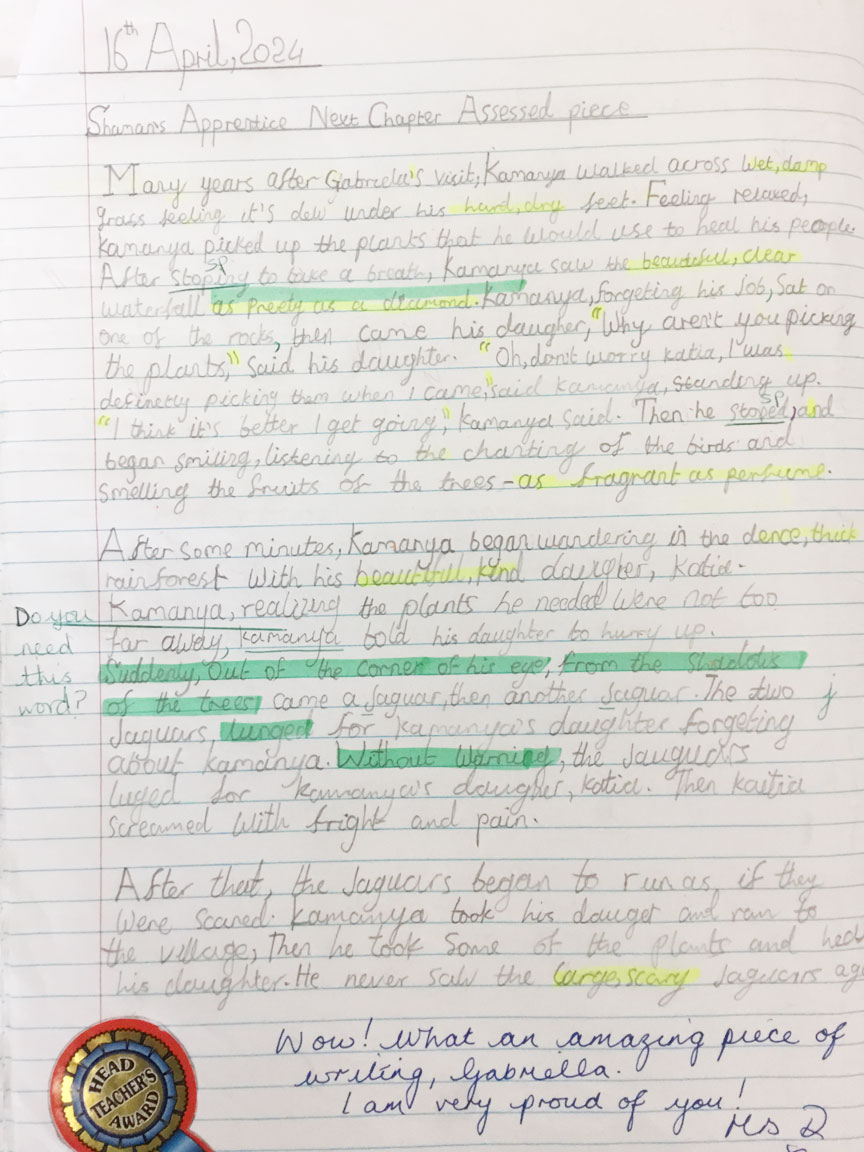 16th April, 2024
Shaman's Apprentice Next Chapter Assessed piece
Many years after Gabriela's visit, Kamanya walked across wet, damp
grass feeling it's dew under his hard, dry feet. Feeling relaxed,
Kamanya picked up the plants that he would use to heal his people
sp
After stoping to take a breath, Kamanya saw the beautiful, clear
waterfall as preety as a diamond. Kamanya, forgeting his job, Sat on
one of the rocks, then came his daugher, "Why aren't you picking
the plants," said his daughter. "Oh, don't worry katia, I was
definetly picking them when I came," said kamanya, standing up.
sp
"I think it's better I get going," kamanya said. Then he stoped, and
began smiling, listening to the chanting of the birds and
smelling the fruits of the trees - as fragrant as perfume.
After some minutes, Kamanya began wandering in the dence, thick
rainforest with his beautiful, kind daughter, katia.
Do you need this word?
Kamanya, realizing the plants he needed were not too
far away, kamanya told his daughter to hurry up.
Suddenly, Out of the corner of his eye, from the shadows
of the trees, came a Jaguar, then another Jaguar. The two j
Jaguars, lunged for kamanya's daughter forgeting
about kamanya. Without warning, the Jauguars
luged for kamanya's daugher, katia. Then kaitia
screamed with fright and pain.
After that, the Jaguars began to run as, if they
were scared. Kamanya took his dauget and ran to
the village, Then he took Some of the plants and
his daughter. He never saw the large, scary Jaguars
HEAD
TEACHER'S
AWARD
Wow! What an amazing piece of
writing, Gabriella.
I am very proud of you!